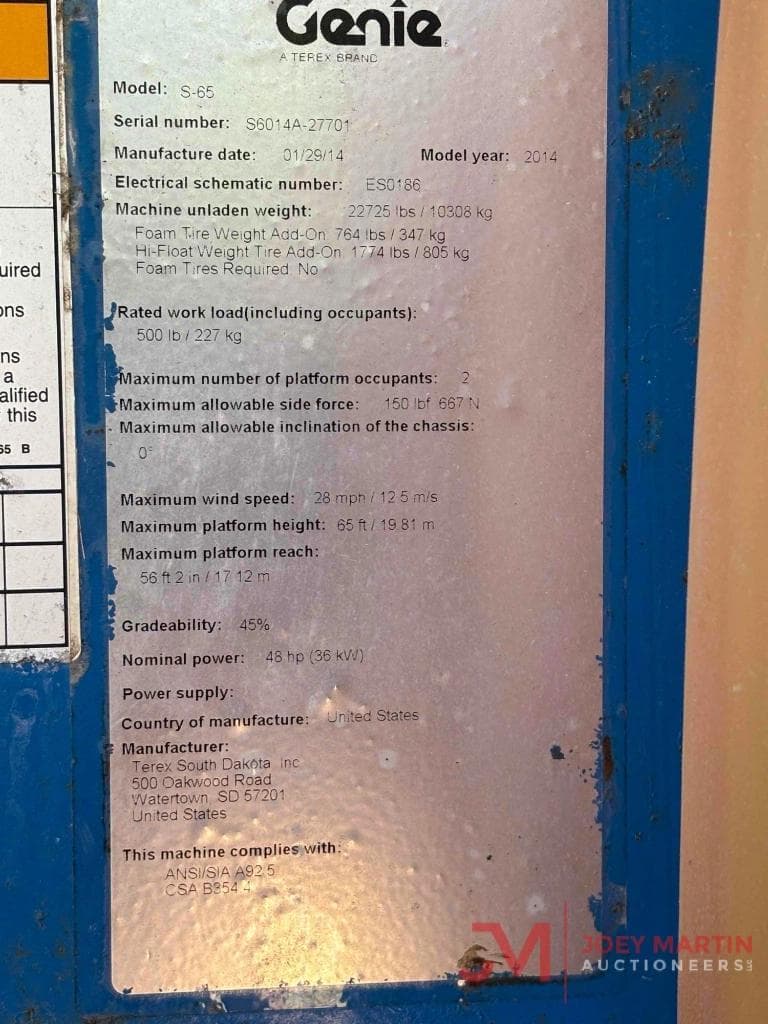 Genie
A TEREX BRAND
Model: S-65
Serial number: S6014A-27701
Manufacture date: 01/29/14 Model year: 2014
Electrical schematic number: ES0186
Machine unladen weight: 22725 lbs / 10308 kg
Foam Tire Weight Add-On 764 lbs / 347 kg
Hi-Float Weight Tire Add-On 1774 lbs / 805 kg
Foam Tires Required No
Rated work load(including occupants):
500 lb / 227 kg
Maximum number of platform occupants: 2
Maximum allowable side force: 150 lbf 667 N
Maximum allowable inclination of the chassis:
0°
Maximum wind speed: 28 mph / 12 5 m/s
Maximum platform height: 65 ft / 19 81 m
Maximum platform reach:
56 ft 2 in / 17 12 m
Gradeability: 45%
Nominal power: 48 hp (36 kW)
Power supply:
Country of manufacture: United States
Manufacturer:
Terex South Dakota Inc
500 Oakwood Road
Watertown SD 57201
United States
This machine complies with:
ANSI/SIA A92 5
CSA B354 4
uired
ons
ns
a
alified
this
65 B
JM
JOEY MARTIN
AUCTIONEERS